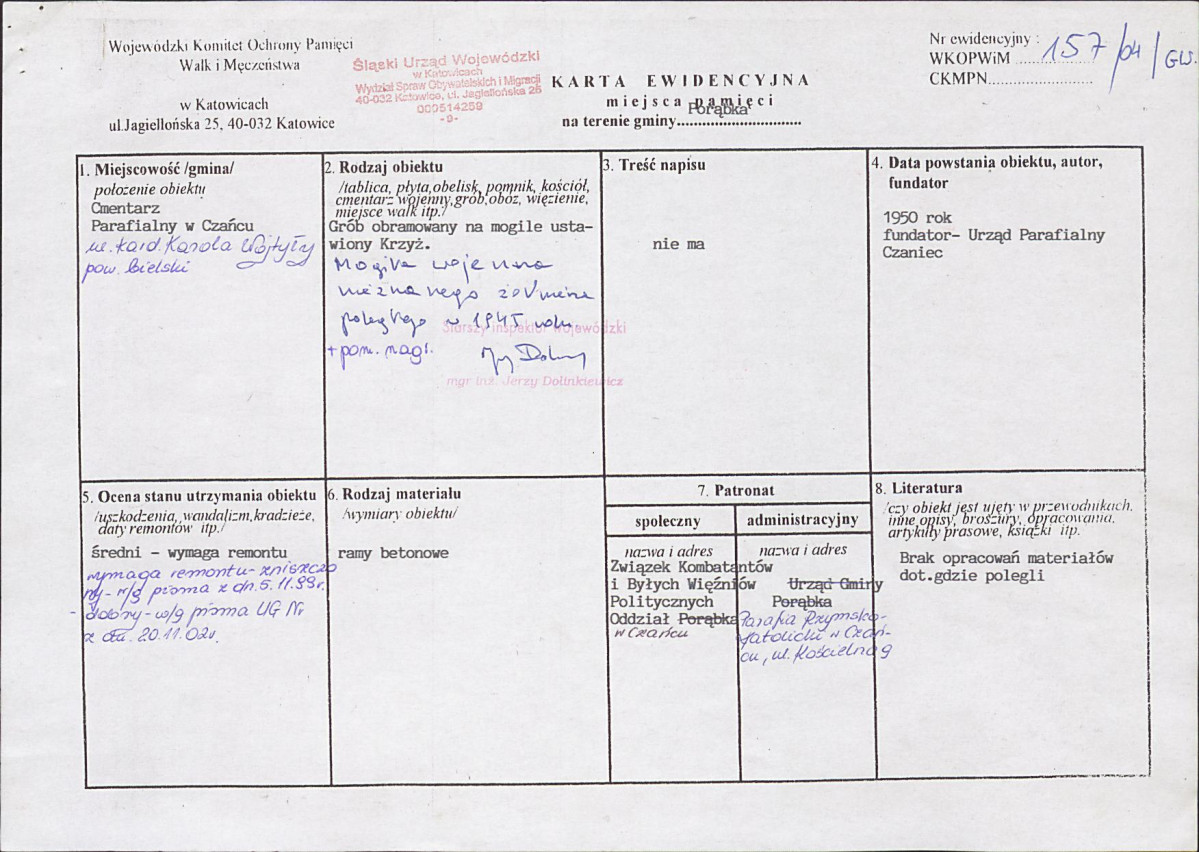 Wojewódzki Komitet Ochrony Pamięci
Walk i Męczeństwa
w Katowicach
ul.Jagiellońska 25, 40-032 Katowice
Śląski Urząd Wojewódzki
w Katowicach
Wydział Spraw Obywatelskich i Migracji
40-032 Katowice, ul. Jagiellońska 25
000514259
-9-
KARTA EWIDENCYJNA
miejsca pamięci
na terenie gminy..............................
Porąbka
Nr ewidencyjny :
WKOPWiM ....................
CKMPN.........................
157/04/GW.
1. Miejscowość /gmina/
położenie obiektu
Cmentarz
Parafialny w Czańcu
ul. kard. Karola Wojtyły
pow. bielski
2. Rodzaj obiektu
/tablica, płyta,obelisk, pomnik, kościół,
cmentarz wojenny,grób,obóz, więzienie,
miejsce walk itp./
Grób obramowany na mogile usta-
wiony Krzyż.
Mogiła wojenna
nieznanego żołnierza
poległego w 1945 roku
+ pom. nagr.
Starszy inspektor wojewódzki
mgr inż. Jerzy Dolinkiewicz
3. Treść napisu
nie ma
4. Data powstania obiektu, autor,
fundator
1950 rok
fundator- Urząd Parafialny
Czaniec
5. Ocena stanu utrzymania obiektu
/uszkodzenia, wandalizm,kradzieże,
daty remontów itp./
średni - wymaga remontu
wymaga remontu-zniszczo
ny - w/g pisma z dn. 5.11.99r.
- dobry - w/g pisma UG Nr
z dn. 20.11.02r.
6. Rodzaj materiału
/wymiary obiektu/
ramy betonowe
7. Patronat
społeczny
nazwa i adres
Związek Kombatantów
i Byłych Więźniów
Politycznych
Oddział Porąbka
w Czańcu
administracyjny
nazwa i adres
Urząd Gminy
Porąbka
Parafia Rzymsko-
Katolicka w Czań-
cu, ul. Kościelna 9
8. Literatura
/czy obiekt jest ujęty w przewodnikach,
inne opisy, broszury, opracowania,
artykuły prasowe, książki itp.
Brak opracowań materiałów
dot.gdzie polegli